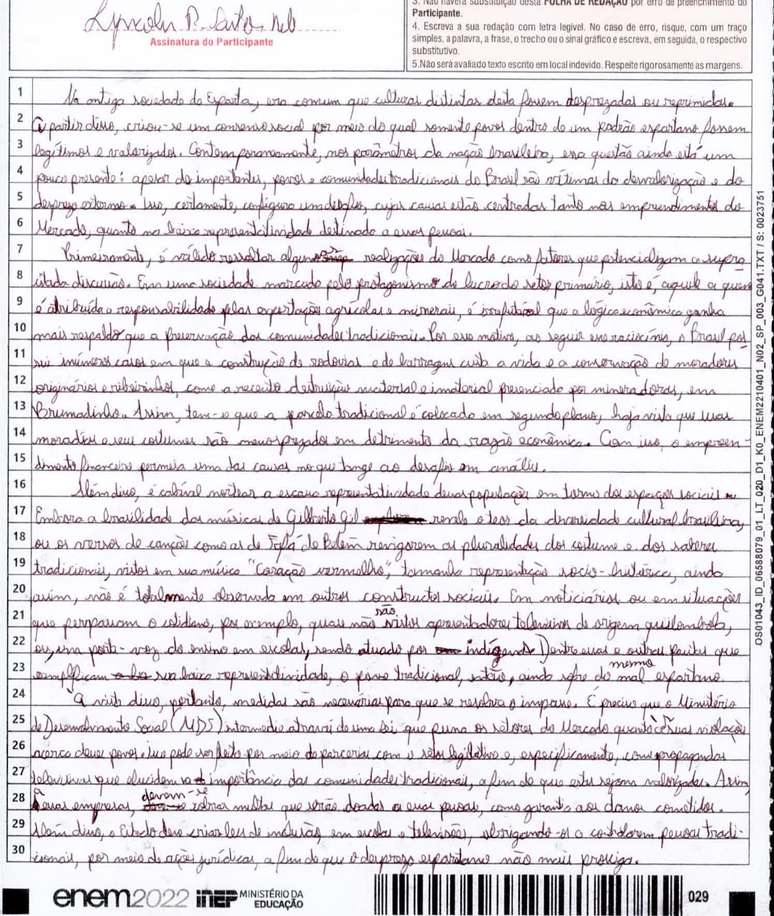 3. Não haverá substituição desta FOLHA DE REDAÇÃO por erro de preenchimento do
Participante.
4. Escreva a sua redação com letra legível. No caso de erro, risque, com um traço
simples, a palavra, a frase, o trecho ou o sinal gráfico e escreva, em seguida, o respectivo
substitutivo.
5.Não será avaliado texto escrito em local indevido. Respeite rigorosamente as margens.
Assinatura do Participante
1 Na antiga sociedade de Esparta, era comum que culturas distintas desta fossem desprezadas ou reprimidas.
2 A partir disso, criou-se um consenso social por meio do qual somente povos dentro de um padrão espartano fossem
3 legítimos e valorizados. Contemporaneamente, nos parâmetros da nação brasileira, essa questão ainda está um
4 pouco presente: apesar de importantes, povos e comunidades tradicionais do Brasil são vítimas da desvalorização e do
5 desprezo externo. Isso, certamente, configura um desafio, cujas causas estão centradas tanto nos empreendimentos do
6 Mercado, quanto na baixa representatividade destinada a essas pessoas.
7 Primeiramente, é válido ressaltar algumas realizações do Mercado como fatores que potencializam a supra-
8 citada discussão. Em uma sociedade marcada pelo protagonismo do lucro do setor primário, isto é, aquele a quem
9 é atribuída a responsabilidade pelas exportações agrícolas e minerais, é irrefutável que a lógica econômica ganha
10 mais respaldo que a preservação das comunidades tradicionais. Por esse motivo, ao seguir esse raciocínio, o Brasil pos-
11 sui inúmeros casos em que a construção de rodovias e de barragens custa a vida e a conservação de moradores
12 originários e ribeirinhos, como a recente destruição material e imaterial presenciada por mineradoras, em
13 Brumadinho. Assim, tem-se que a parcela tradicional é colocada em segundo plano, haja vista que suas
14 moradias e seus costumes são menosprezados em detrimento da razão econômica. Com isso, o empreen-
15 dimento financeiro permeia uma das causas no que tange ao desafio em análise.
16 Além disso, é cabível nortear a escassa representatividade dessas populações em turnos dos espaços sociais.
17 Embora a brasilidade das músicas de Gilberto Gil revele o teor da diversidade cultural brasileira,
18 ou os versos de canções como as de Fafá de Belém revigorem as pluralidades dos costumes e dos saberes
19 tradicionais, vistos em sua música "Coração vermelho", tamanha representação socio-histórica, ainda
20 assim, não é totalmente observada em outros constructos sociais. Em noticiários ou em situações
21 que perpassam o cotidiano, por exemplo, quase não são vistos apresentadores televisivos de origem quilombola,
22 ou, um porta-voz do ensino em escolas, sendo atuado por indígena. Dentre essas e outras pautas que
23 exemplificam sua baixa representatividade, o povo tradicional, então, ainda sofre do mesmo mal espartano.
24 À vista disso, portanto, medidas são necessárias para que se resolva o impasse. É preciso que o Ministério
25 de Desenvolvimento Social (MDS) intermedie através de uma lei que puna os setores do Mercado quanto às suas violações
26 acerca desses povos, isso pode ser feito por meio de parcerias com o setor legislativo e, especificamente, com propagandas
27 televisivas que elucidem a importância das comunidades tradicionais, a fim de que estas sejam valorizadas. Assim,
28 a essas empresas, devem-se cobrar multas que serão doadas a essas pessoas, como garantia aos danos cometidos.
29 Além disso, o Estado deve criar leis de inclusão, em escolas e televisões, obrigando-os a contratarem pessoas tradi-
30 cionais, por meio de ações jurídicas, a fim de que o desprezo espartano não mais prossiga.
OS01043_ID_06588079_01_LT_020_D1_K0_ENEM2210401_N02_SP_003_G041.TXT / S: 0023751
enem2022 inep MINISTÉRIO DA
EDUCAÇÃO
029